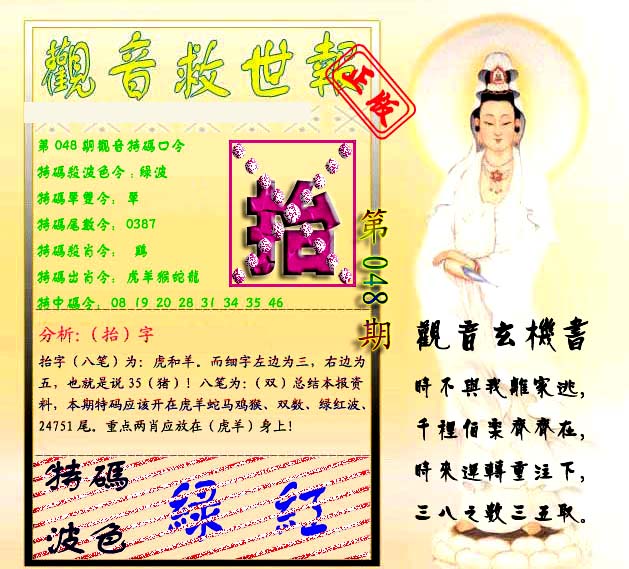 觀音救世報
正版
第048期觀音特碼口令
特碼殺波色令:綠波
特碼單雙令: 單
特碼尾數令: 0387
特碼殺肖令: 鷄
特碼出肖令: 虎羊猴蛇龍
特中碼令: 08 19 20 28 31 34 35 46
抬
第 048 期
分析:(抬)字
抬字(八笔)为: 虎和羊。而细字左边为三, 右边为
五, 也就是说 35(猪)! 八笔为:(双)总结本报资
料, 本期特码应该开在虎羊蛇马鸡猴、双数、绿红波、
24751 尾。重点两肖应放在(虎羊)身上!
特碼
波色
綠 紅
觀音玄機書
時不與我離家逃,
千裡佰 齊齊在,
時來逆轉重注下,
三八之數三五取。